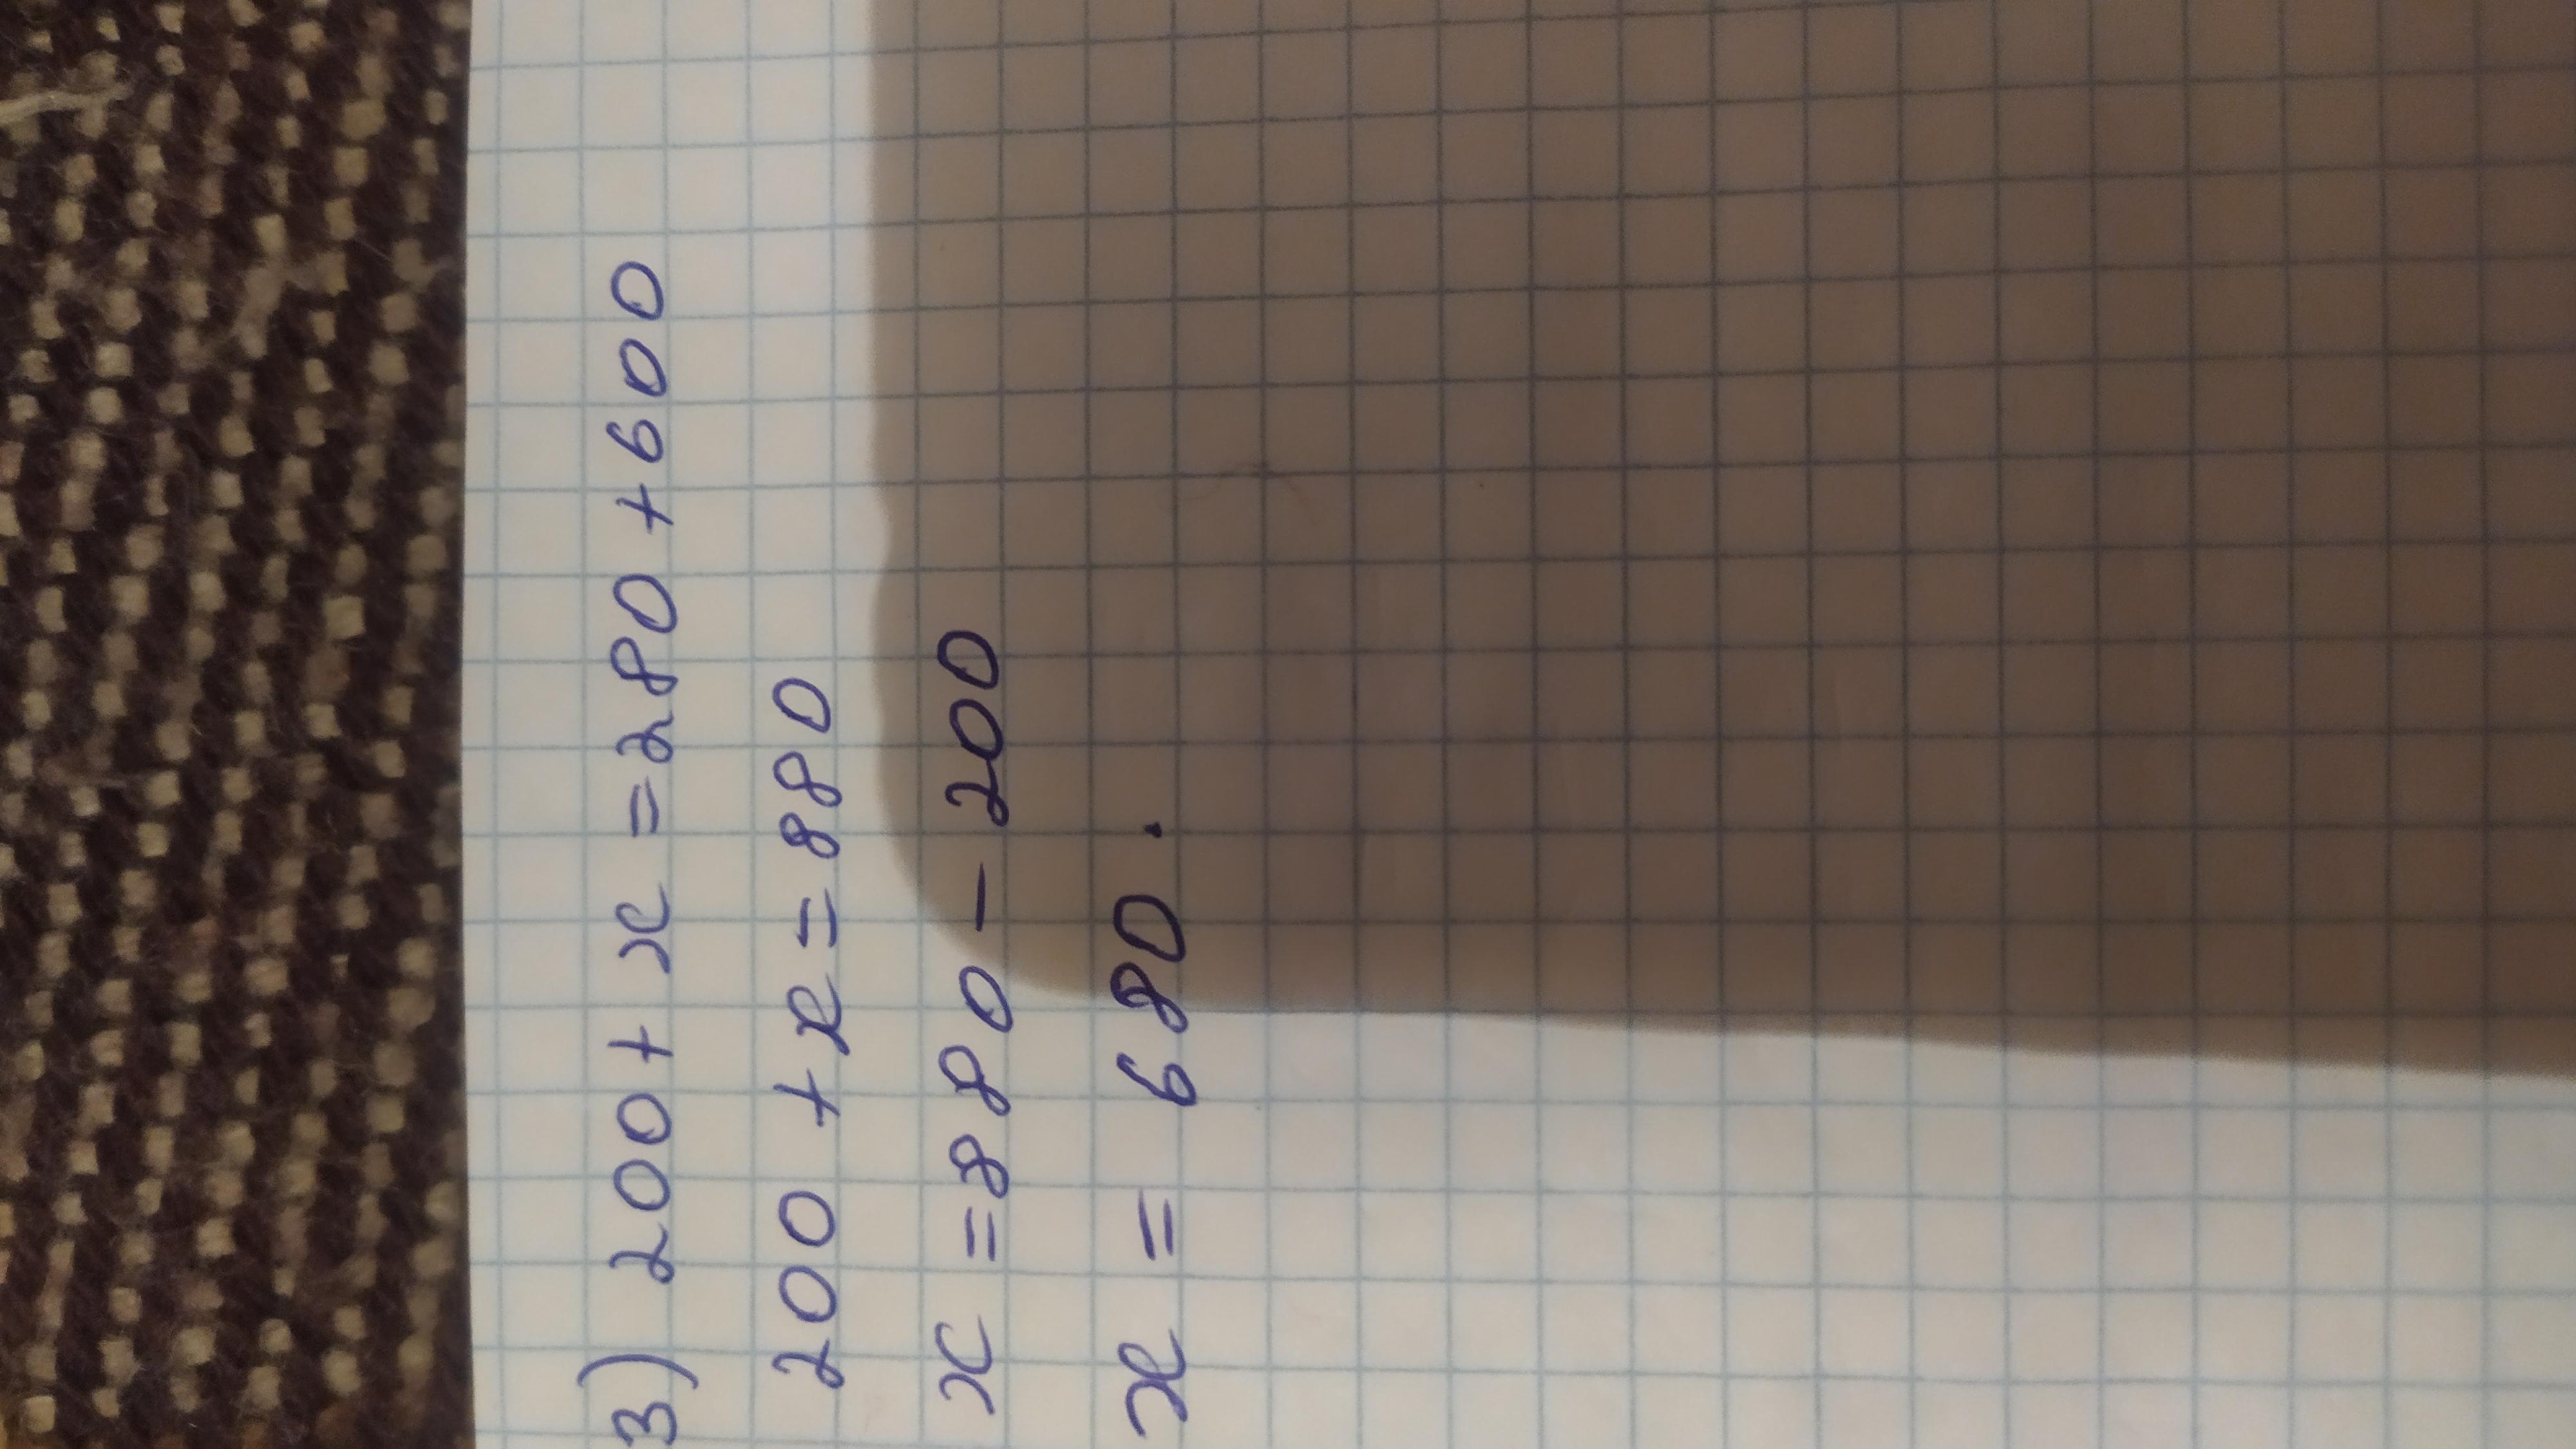 3) 200 + x = 280 + 600
200 + x = 880
x = 880 - 200
x = 680.